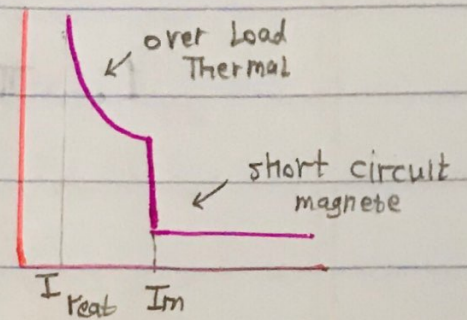 over Load
Thermal
short circuit
magnete
I reat Im